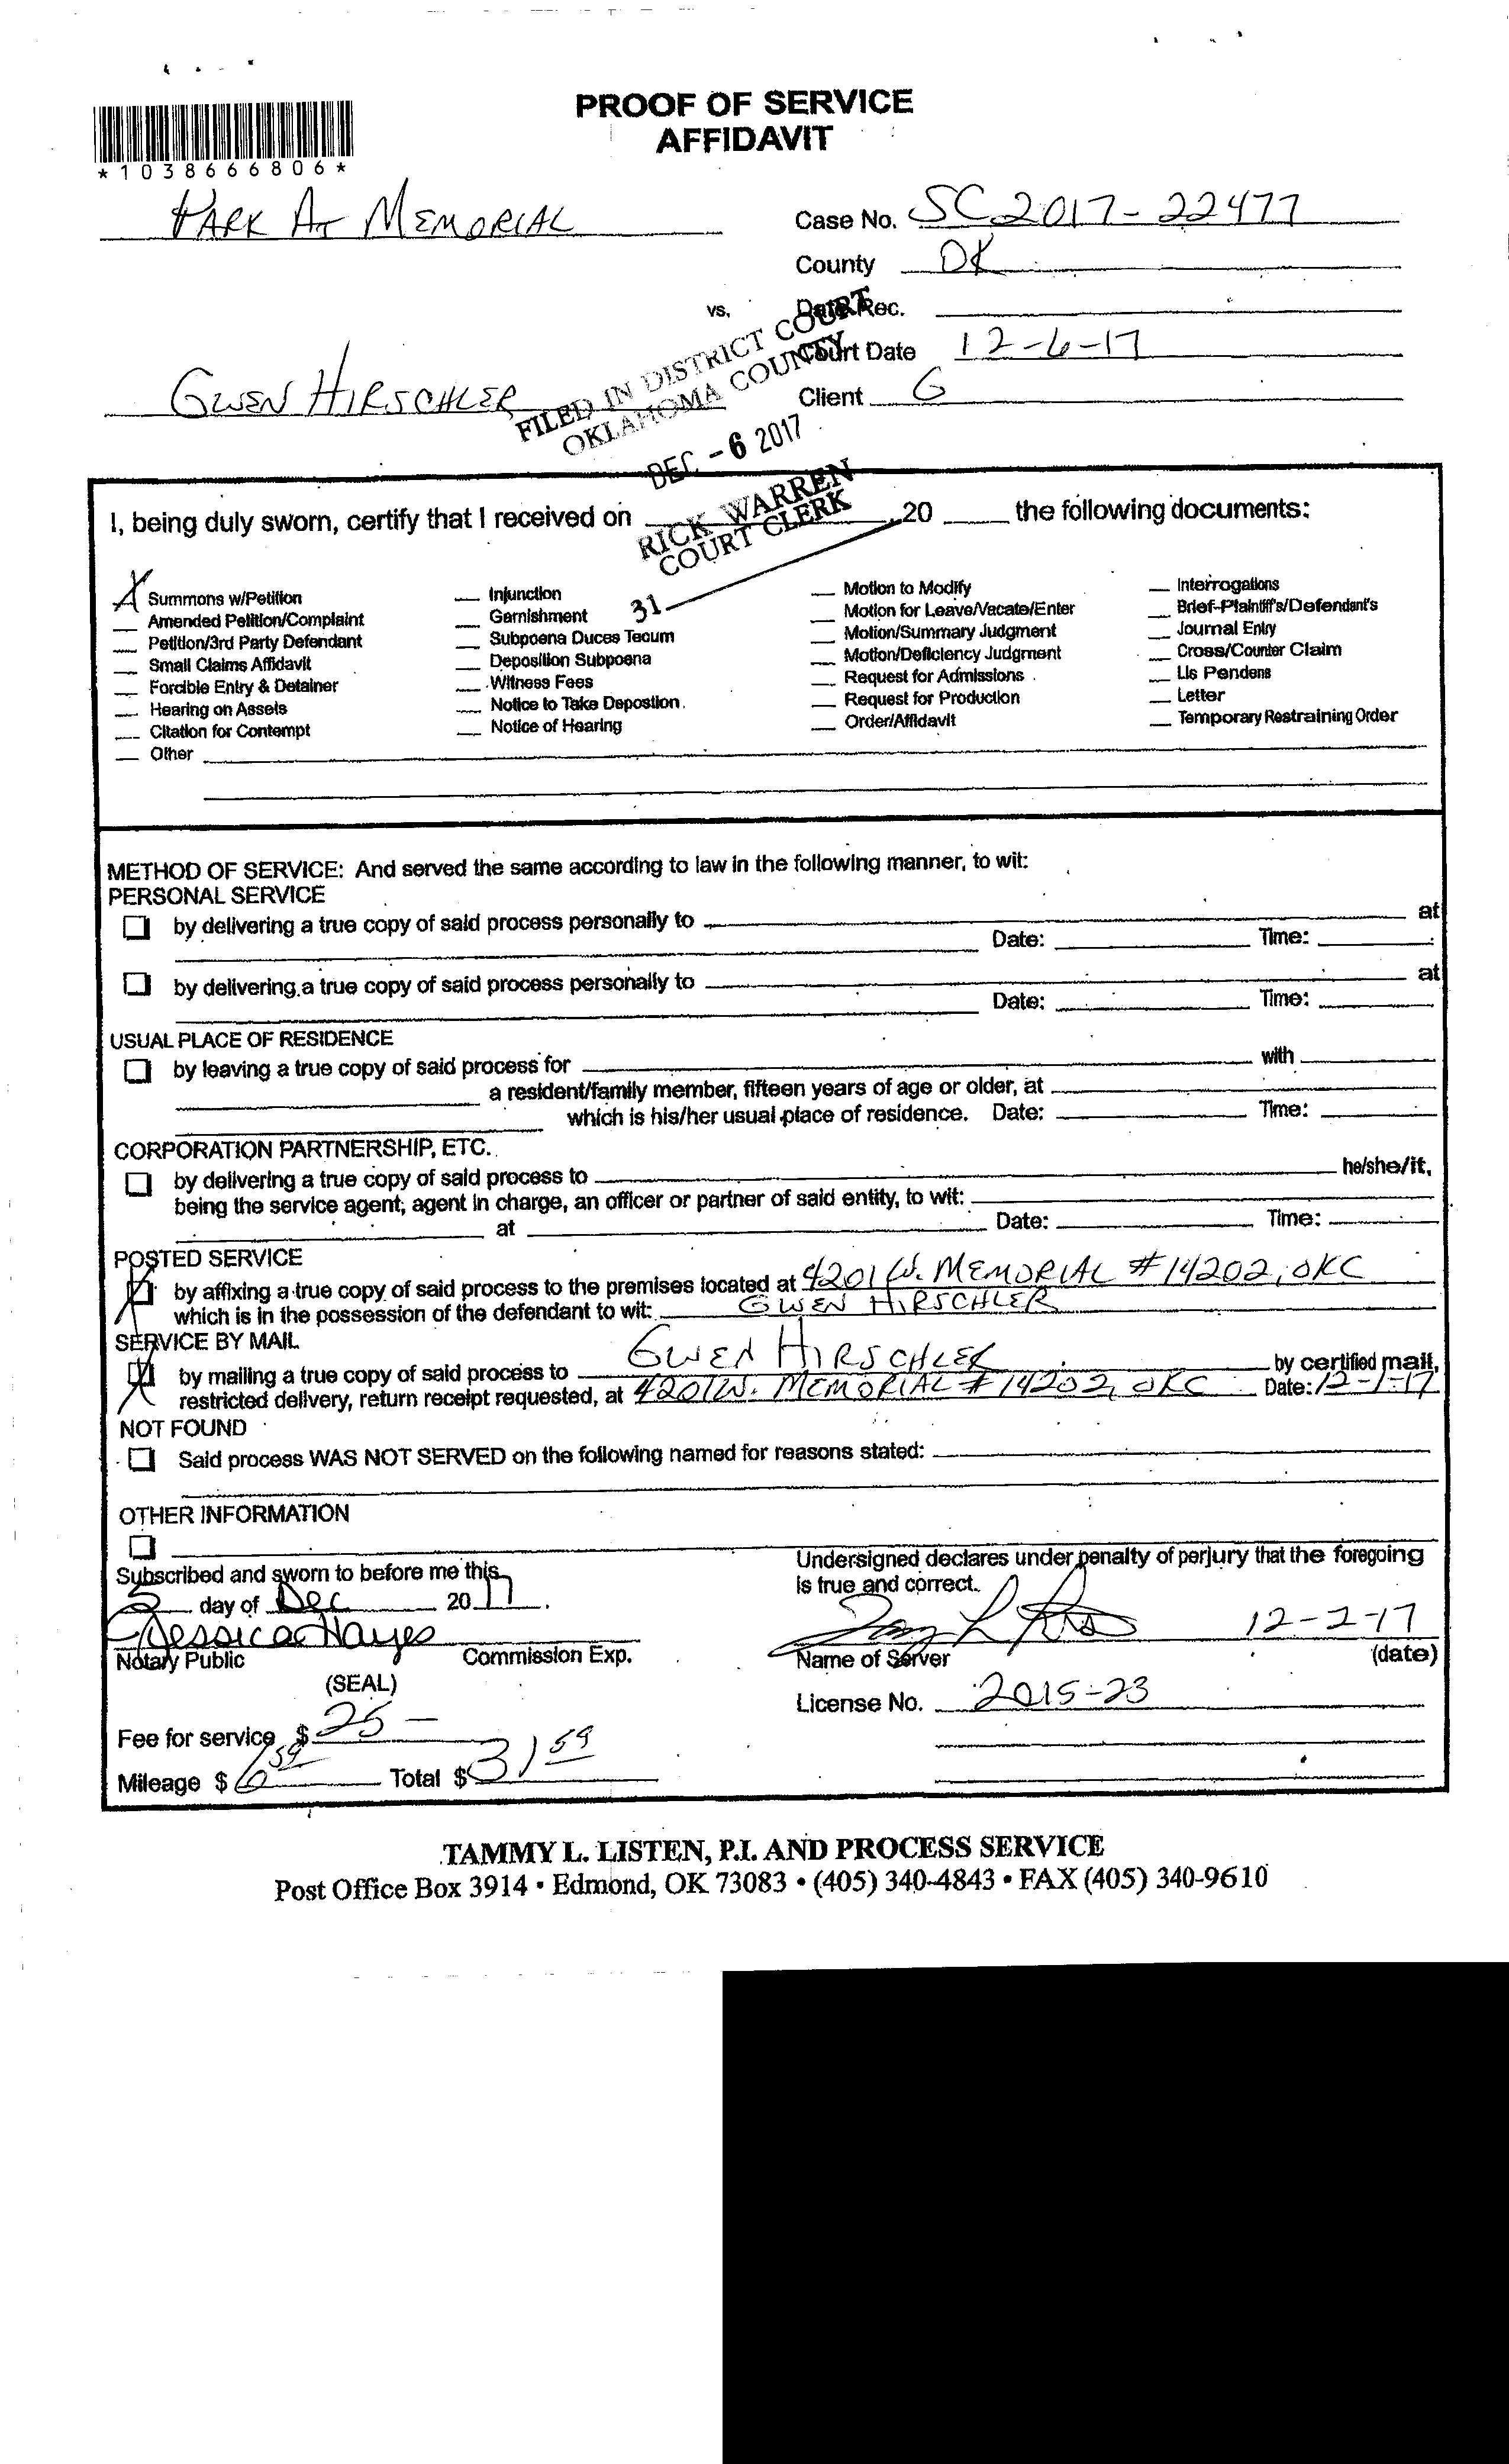 PROOF OF SERVICE
AFFIDAVIT
*1038666806*
PARK AT MEMORIAL
Case No. SC 2017-22477
County OK
vs.
Date Rec.
Court Date 12-6-17
GWEN HIRSCHLER
Client G
FILED IN DISTRICT COURT
OKLAHOMA COUNTY
DEC -6 2017
RICK WARREN
COURT CLERK
31
I, being duly sworn, certify that I received on , 20 the following documents:
X Summons w/Petition
Amended Petition/Complaint
Petition/3rd Party Defendant
Small Claims Affidavit
Forcible Entry & Detainer
Hearing on Assets
Citation for Contempt
Other
Injunction
Garnishment
Subpoena Duces Tecum
Deposition Subpoena
Witness Fees
Notice to Take Depostion
Notice of Hearing
Motion to Modify
Motion for Leave/Vacate/Enter
Motion/Summary Judgment
Motion/Deficiency Judgment
Request for Admissions
Request for Production
Order/Affidavit
Interrogations
Brief-Plaintiff's/Defendant's
Journal Entry
Cross/Counter Claim
Lis Pendens
Letter
Temporary Restraining Order
METHOD OF SERVICE: And served the same according to law in the following manner, to wit:
PERSONAL SERVICE
by delivering a true copy of said process personally to at
Date: Time:
by delivering a true copy of said process personally to at
Date: Time:
USUAL PLACE OF RESIDENCE
by leaving a true copy of said process for with
a resident/family member, fifteen years of age or older, at
which is his/her usual place of residence. Date: Time:
CORPORATION PARTNERSHIP, ETC.
by delivering a true copy of said process to he/she/it,
being the service agent; agent in charge, an officer or partner of said entity, to wit:
at Date: Time:
POSTED SERVICE
by affixing a true copy of said process to the premises located at 4201 W. MEMORIAL #14202, OKC
which is in the possession of the defendant to wit: GWEN HIRSCHLER
SERVICE BY MAIL
by mailing a true copy of said process to GWEN HIRSCHLER by certified mail,
restricted delivery, return receipt requested, at 4201 W. MEMORIAL #14202, OKC Date: 12-1-17
NOT FOUND
Said process WAS NOT SERVED on the following named for reasons stated:
OTHER INFORMATION
Subscribed and sworn to before me this
day of Dec 2017.
Jessica Hayes
Notary Public Commission Exp.
(SEAL)
Undersigned declares under penalty of perjury that the foregoing
is true and correct.
12-2-17
Name of Server (date)
License No. 2015-23
Fee for service $ 25 -
Mileage $ 6 59 Total $ 31 59
TAMMY L. LISTEN, P.I. AND PROCESS SERVICE
Post Office Box 3914 • Edmond, OK 73083 • (405) 340-4843 • FAX (405) 340-9610